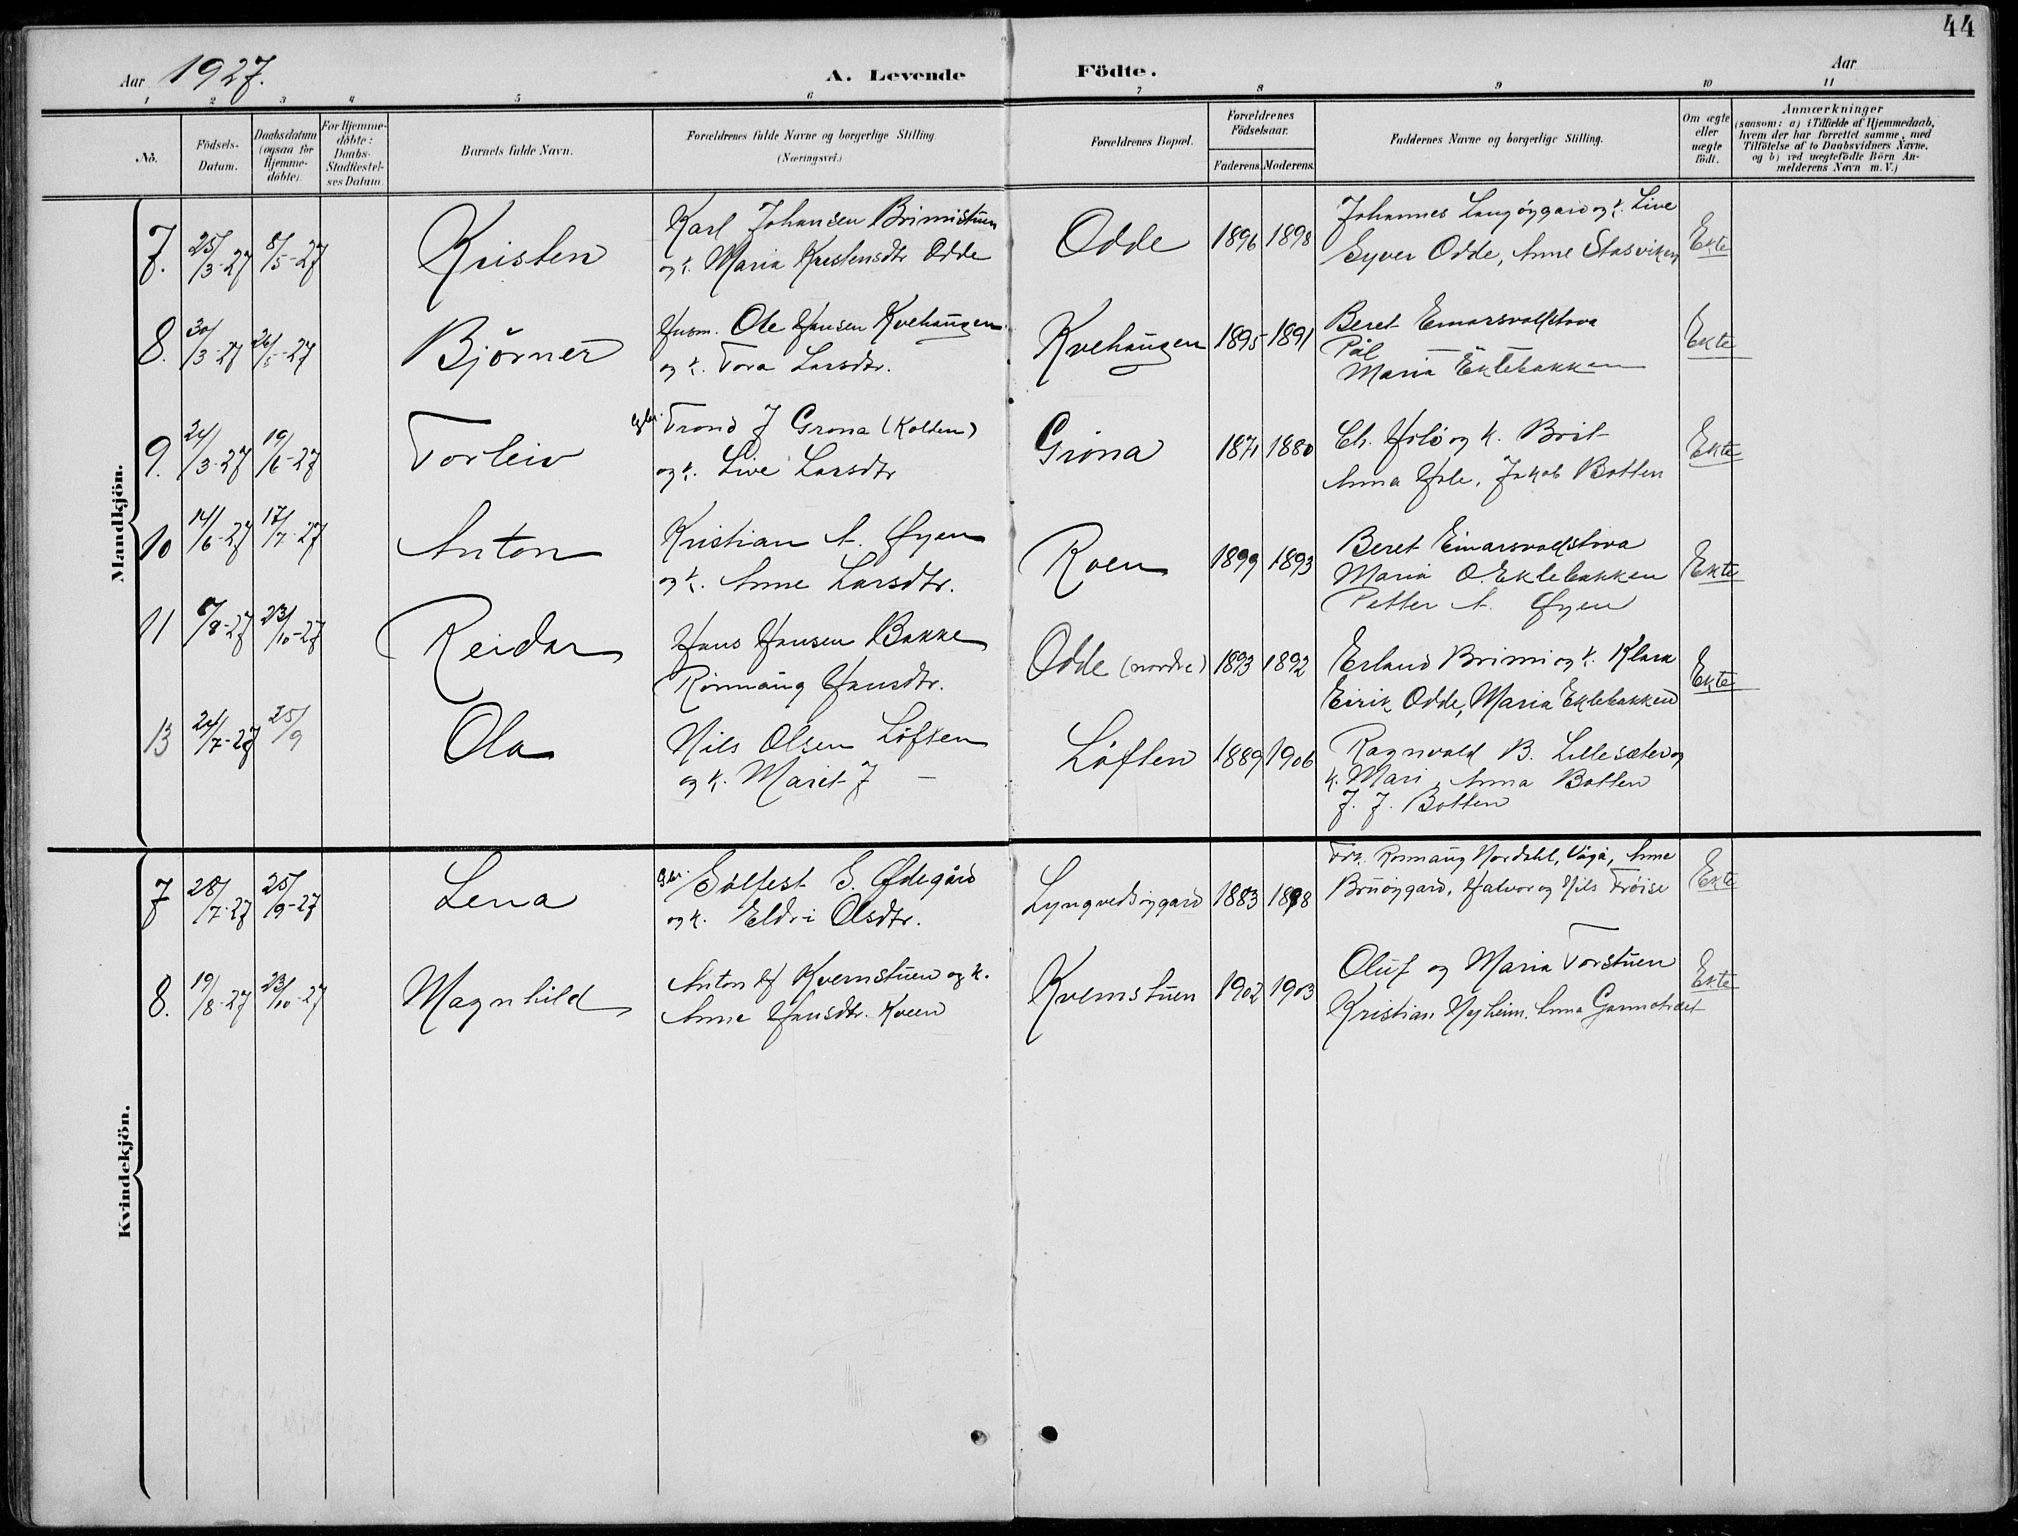 44
Aar 1927. A. Levende Födte. Aar
1 2 3 4 5 6 7 8 9 10 11
No. Födsels-Datum. Daabsdatum (ogsaa for Hjemme-döbte). For Hjemme-döbte: Daabs-Stadfæstel-ses Datum. Barnets fulde Navn. Forældrenes fulde Navne og borgerlige Stilling. (Næringsvei.) Forældrenes Bopæl. Forældrenes Födselsaar. Faderens. Moderens. Faddernes Navne og borgerlige Stilling. Om ægte eller uægte födt. Anmærkninger (saasom: a) i Tilfælde af Hjemmedaab, hvem der har forrettet samme, med Tilföielse af to Daabsvidners Navne, og b) ved uægtefödte Börn An-melderens Navn m. V.)
Mandkjön.
7. 25/3-27 8/5-27 Kristen Karl Johansen Brimistuen Odde 1896 1898 Johannes Langøygard og k. Live Ekte
og k. Maria Kristensdtr Odde Syver Odde, Anne Stasviken
8. 30/3-27 26/5-27 Bjørner Husm. Ole Hansen Kvehaugen Kvehaugen 1895 1891 Beret Einarsvollstova Ekte
og k. Tora Larsdtr. Pål —
Maria Eklebakken
9. 24/3-27 19/6-27 Torleiv Trond J Grona (Kolden) Grona 1871 1880 Ch. Holö og k. Brit Ekte
og k. Live Larsdtr Anna Hole, Jakob Botten
10 14/6-27 17/7-27 Anton Kristian A. Øyen Roen 1899 1893 Beret Einarsvollstova Ekte
og k. Anne Larsdtr. Maria O. Eklebakken
Petter A. Øyen
11 /8-27 23/10-27 Reidar Hans Hansen Bakke Odde (nordre) 1893 1892 Erland Brimi og k. Klara Ekte
Rønnaug Hansdtr. Eirik Odde, Maria Eklebakken
13 24/7-27 25/9 Ola Nils Olsen Løften Løften 1889 1906 Ragnvald B. Lillesæter og
og k. Marit J — k. Mari, Anna Botten
J. J. Botten
Kvindekjön.
7 28/7-27 25/9-27 Lena Gbr. Sølfest S. Ødegård Lyngvedsøygard 1883 1888 Frk. Rønnaug Nordahl, Vågå, Anne Ekte
og k. Eldri Olsdtr. Bruøygard, Halvor og Nils Frøise
8. 19/8-27 23/10-27 Magnhild Anton H Kvernstuen og k. Kvernstuen 1902 1903 Oluf og Maria Torstuen Ekte
Anne Hansdtr. Kveen Kristian Nyheim. Anna